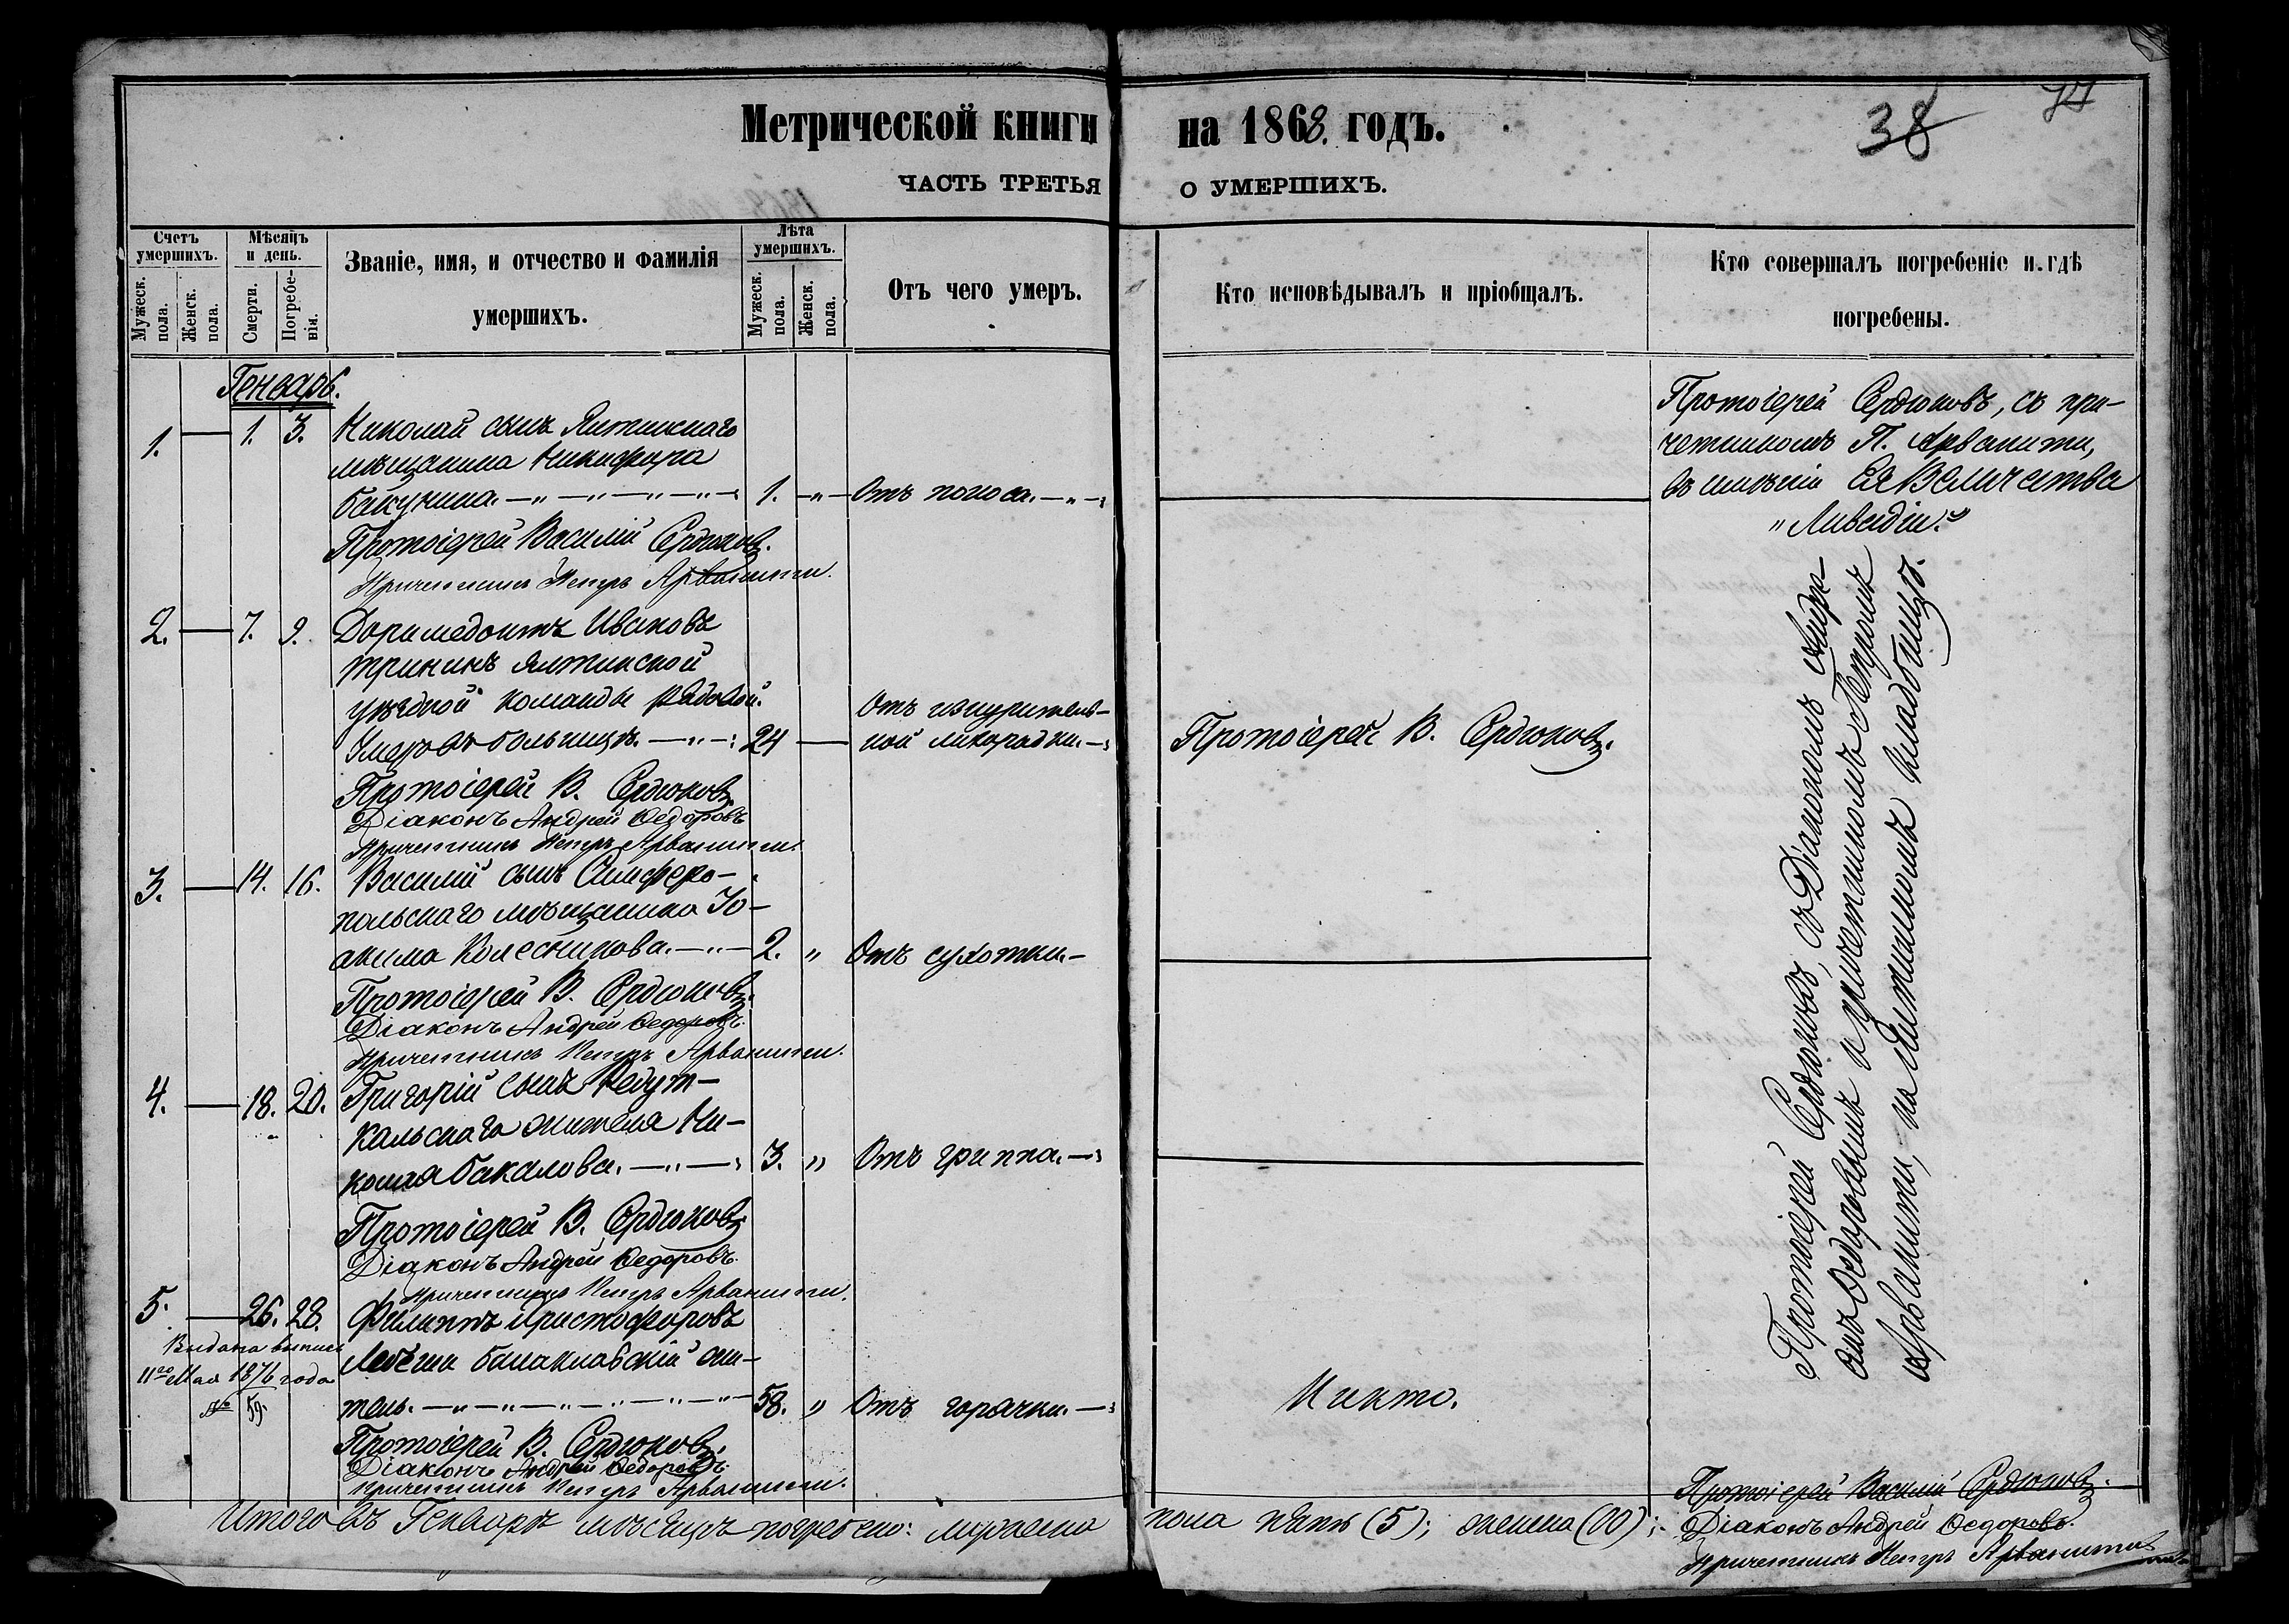 Метрической книги на 1868. годъ.
38
ЧАСТЬ ТРЕТЬЯ О УМЕРШИХЪ.
Счетъ умершихъ.
Мужеск. пола.
Женск. пола.
Мѣсяцъ и день.
Смерти.
Погребенія.
Званіе, имя, и отчество и фамилія умершихъ.
Лѣта умершихъ.
Мужеск. пола.
Женск. пола.
Отъ чего умеръ.
Кто исповѣдывалъ и пріобщалъ.
Кто совершалъ погребеніе и гдѣ
погребены.
Генварь.
1. — 1. 3. Николай сынъ Ялтинскаго
мѣщанина Никифора
Бакунина. 1. Отъ поноса.
Протоіерей Василій Сердюковъ.
Причетникъ Петръ Арванити.
Протоіерей Сердюковъ, съ при-
четникомъ П. Арванити,
въ имѣніи Ея Величества
„Ливадіи."
2. — 7. 9. Доримедонтъ Ивановъ
Трининъ Ялтинской
уѣздной команды рядовой.
Умеръ въ больницѣ. 24 — Отъ изнуритель-
ной лихорадки.
Протоіерей В. Сердюковъ.
Протоіерей В. Сердюковъ.
Діаконъ Андрей Федоровъ
Причетникъ Петръ Арванити.
3. — 14. 16. Василій сынъ Симферо-
польскаго мѣщанина Іо-
акима Колесникова. 2. „ Отъ сухотки.
Протоіерей В. Сердюковъ.
Діаконъ Андрей Федоровъ.
Причетникъ Петръ Арванити.
4. — 18. 20. Григорій сынъ Редут-
кальскаго жителя Ни-
колая Бакалова. 3. „ Отъ гриппа.
Протоіерей В. Сердюковъ.
Діаконъ Андрей Федоровъ.
Причетникъ Петръ Арванити.
5. — 26. 28. Филиппъ Христофоровъ
Балаклавскій жи-
тель. 58. „ Отъ горячки.
Никто.
Выдана выпись
11го Мая 1876 года
№ 59.
Протоіерей В. Сердюковъ.
Діаконъ Андрей Федоровъ.
Причетникъ Петръ Арванити.
Протоіерей Сердюковъ, съ Діакономъ Андре-
емъ Федоровымъ и причетникомъ Петромъ
Арванити, на Ялтинскомъ кладбищѣ.
Итого въ Генварѣ мѣсяцѣ погребено: мужеска пола пять (5); женска (00);
Протоіерей Василій Сердюковъ.
Діаконъ Андрей Федоровъ.
Причетникъ Петръ Арванити